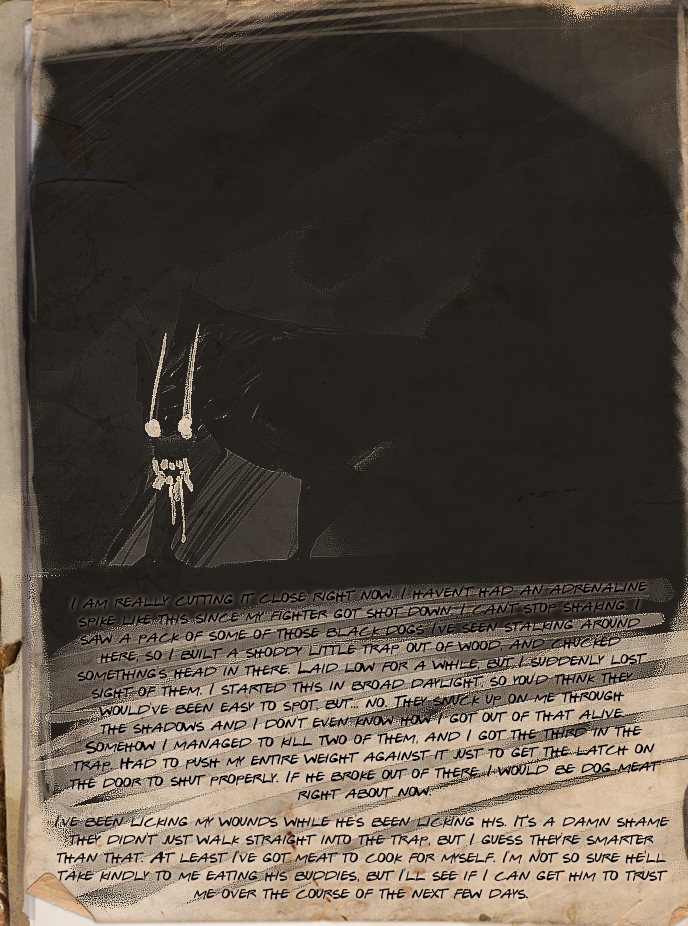 I AM REALLY CUTTING IT CLOSE RIGHT NOW. I HAVENT HAD AN ADRENALINE
SPIKE LIKE THIS SINCE MY FIGHTER GOT SHOT DOWN. I CAN'T STOP SHAKING. I
SAW A PACK OF SOME OF THOSE BLACK DOGS I'VE SEEN STALKING AROUND
HERE, SO I BUILT A SHODDY LITTLE TRAP OUT OF WOOD, AND CHUCKED
SOMETHING'S HEAD IN THERE. LAID LOW FOR A WHILE, BUT I SUDDENLY LOST
SIGHT OF THEM. I STARTED THIS IN BROAD DAYLIGHT, SO YOU'D THINK THEY
WOULD'VE BEEN EASY TO SPOT, BUT... NO. THEY SNUCK UP ON ME THROUGH
THE SHADOWS AND I DON'T EVEN KNOW HOW I GOT OUT OF THAT ALIVE.
SOMEHOW I MANAGED TO KILL TWO OF THEM, AND I GOT THE THIRD IN THE
TRAP. HAD TO PUSH MY ENTIRE WEIGHT AGAINST IT JUST TO GET THE LATCH ON
THE DOOR TO SHUT PROPERLY. IF HE BROKE OUT OF THERE, I WOULD BE DOG MEAT
RIGHT ABOUT NOW.
I'VE BEEN LICKING MY WOUNDS WHILE HE'S BEEN LICKING HIS. IT'S A DAMN SHAME
THEY DIDN'T JUST WALK STRAIGHT INTO THE TRAP, BUT I GUESS THEY'RE SMARTER
THAN THAT. AT LEAST I'VE GOT MEAT TO COOK FOR MYSELF. I'M NOT SO SURE HE'LL
TAKE KINDLY TO ME EATING HIS BUDDIES, BUT I'LL SEE IF I CAN GET HIM TO TRUST
ME OVER THE COURSE OF THE NEXT FEW DAYS.